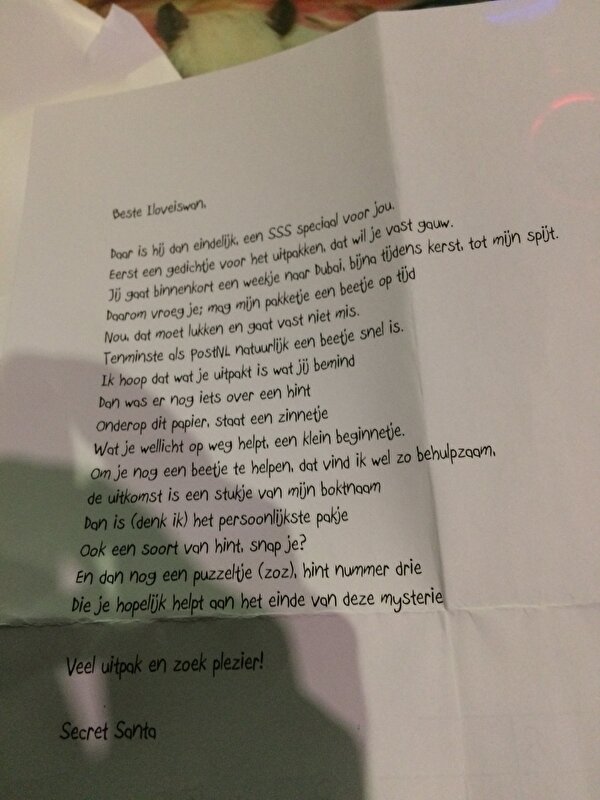 Beste Iloveiswan,
Daar is hij dan eindelijk, een SSS speciaal voor jou.
Eerst een gedichtje voor het uitpakken, dat wil je vast gauw.
Jij gaat binnenkort een weekje naar Dubai, bijna tijdens kerst, tot mijn spijt.
Daarom vroeg je; mag mijn pakketje een beetje op tijd
Nou, dat moet lukken en gaat vast niet mis.
Tenminste als PostNL natuurlijk een beetje snel is.
Ik hoop dat wat je uitpakt is wat jij bemind
Dan was er nog iets over een hint
Onderop dit papier, staat een zinnetje
Wat je wellicht op weg helpt, een klein beginnetje.
Om je nog een beetje te helpen, dat vind ik wel zo behulpzaam,
de uitkomst is een stukje van mijn boktnaam
Dan is (denk ik) het persoonlijkste pakje
Ook een soort van hint, snap je?
En dan nog een puzzeltje (zoz), hint nummer drie
Die je hopelijk helpt aan het einde van deze mysterie
Veel uitpak en zoek plezier!
Secret Santa